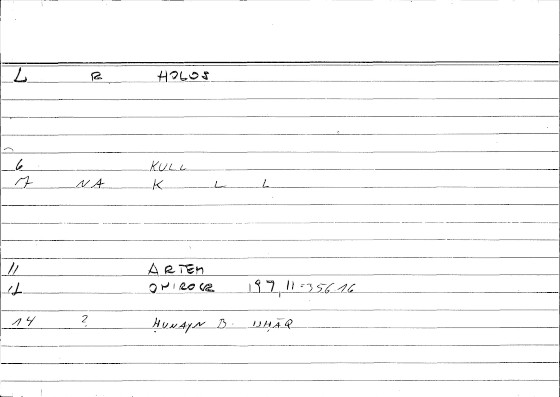 L R HOLOS
6 KULL
7 NA K L L
11 ARTEM
12 ONIROCR 197,11-356 16
14 ? ḤUNAYN B. ISḤĀQ